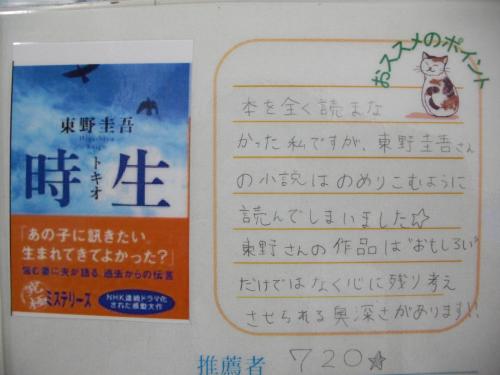 おススメのポイント
東野圭吾
Higashino
Keigo
時生
トキオ
「あの子に訊きたい。
生まれてきてよかった?」
悩む妻に夫が語る、過去からの伝言
究極
ミステリーズ
NHK連続ドラマ化
された感動大作
本を全く読まな
かった私ですが、東野圭吾さん
の小説はのめりこむように
読んでしまいました☆
東野さんの作品は"おもしろい"
だけではなく心に残り考え
させられる奥深さがあります!!
推薦者 720★